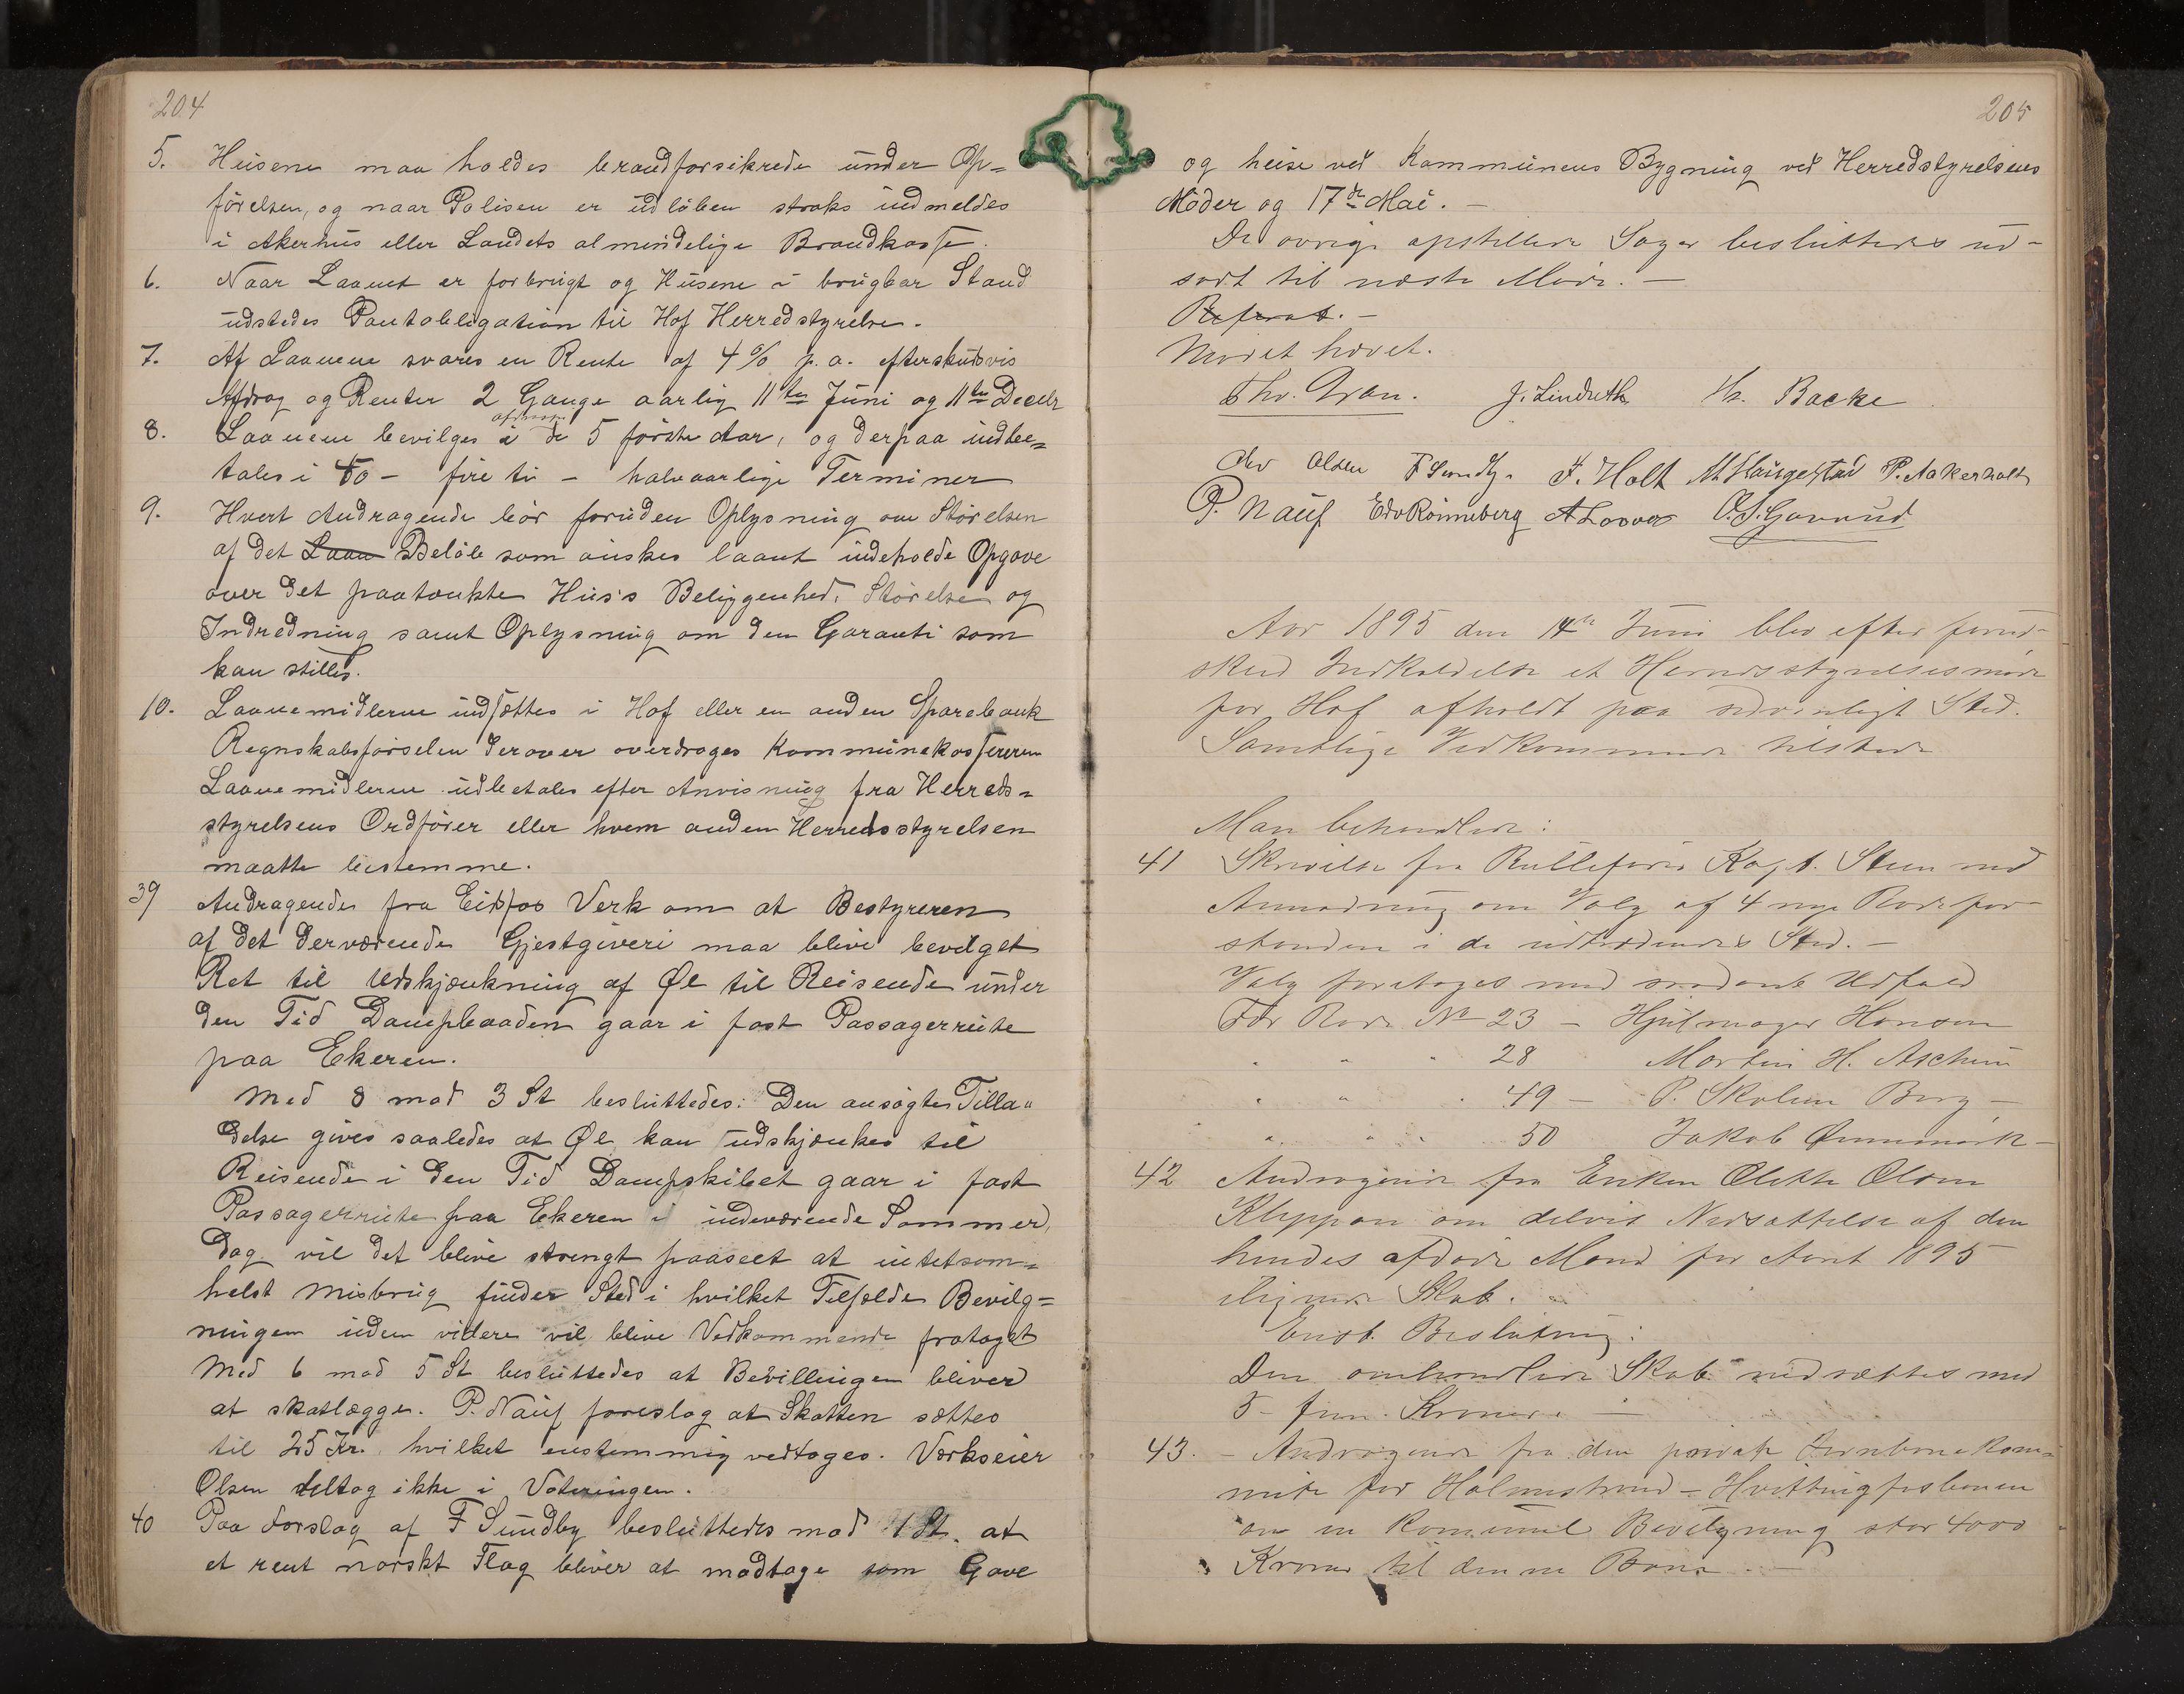 204
5. Husene maa holdes brandforsikrede under Op=
förelsen, og naar Polisen er udlöben straks indmeldes
i Akerhus eller Landets almindelige Brandkasse.
6. Naar Laanet er forbrugt og Husene i brugbar Stand
udstedes Pantobligation til Hof Herredstyrelse.
7. Af Laanene svares en Rente af 4% p.a. efterskudsvis
Afdrag og Renter 2 Gange aarlig 11te Juni og 11te Decebr
8. Laanene bevilges afdragsfri i de 5 förste Aar, og derpaa indbe=
tales i 40 - fire ti - halvaarlige Terminer
9. Hvert Andragende bör foruden Oplysning om Störelsen
af det Laan Belöb som önskes laant indeholde Opgave
over det paatænkte Hus's Beliggenhed, Störelse og
Indredning samt Oplysning om den Garanti som
kan stilles.
10. Laanemidlerne indsættes i Hof eller en anden Sparebank
Regnskabsförselen derover overdrages Kommunekassereren
Laanemidlerne udbetales efter Anvisning fra Herreds=
styrelsens Ordförer eller hvem anden Herredsstyrelsen
maatte bestemme.
39 Andragende fra Eidsfos Verk om at Bestyreren
af det derværende Gjestgiveri maa blive bevilget
Ret til Udskjænkning af Øl til Reisende under
den Tid Dampbaaden gaar i fast Passagerrute
paa Ekeren.
Med 8 mod 3 St besluttedes: Den ansögte Tilla=
delse gives saaledes at Øl kan udskjænkes til
Reisende i den Tid Dampskibet gaar i fast
Passagerrute paa Ekeren i indeværende Sommer,
Dog vil det blive strengt paaseet at intetsom=
helst Misbrug finder Sted i hvilket Tilfælde Bevilg=
ningen uden videre vil blive Vedkommende frataget
Med 6 mod 5 St besluttedes at Bevillingen bliver
at skatlægge. P. Nauf foreslog at Skatten sættes
til 25 Kr. hvilket enstemmig vedtoges. Værkseier
Olsen deltog ikke i Voteringen.
40 Paa Forslag af F Sundby besluttedes mod 1 St. at
et rent norskt Flag bliver at modtage som Gave
205
og heise ved Kommunens Bygning ved Herredstyrelsens
Möder og 17de Mai. -
De övrige opstillede Sager besluttedes ud-
sat til næste Möde. -
Referat. -
Mödet hævet.
Thv. Gran. J. Lindseth Hr. Backe
Chr Olsen F Sundby. F. Holt M. Haugestad P. Aakerholt
P. Nauf Edv Rönneberg A Loover O.S. Gavrud
Aar 1895 den 14de Juni blev efter forud-
skeed Indkaldelse et Herredsstyrelsesmöde
for Hof afholdt paa sedvanligt Sted.
Samtlige Vedkommende tilstede
Man behandlede:
41 Skrivelse fra Rulleförer Kapt. Steen med
Anmodning om Valg af 4 nye Rodefor-
standere i de udtrædendes Sted. -
Valg foretoges med saadant Udfald
For Rode No 23 - Hjulmager Hansen
" " " 28 Martin H. Aschim
" " " 49 - P. Skolim Berg -
" " " 50 Jakob Ommmork -
42 Andragende fra Enken Olette Olsen
Kleppan om delvis Nedsættelse af den
hendes afdöde Mand for Aaret 1895
ilignede Skat. -
Enst. Beslutning:
Den omhandlede Skat nedsættes med
5 - fem - Kroner. -
43. - Andragende fra den private Jernbanekom=
mite for Holmestrand - Hvittingfosbanen
om en Komunal Bevilgning stor 4000
Kroner til denne Bane. -